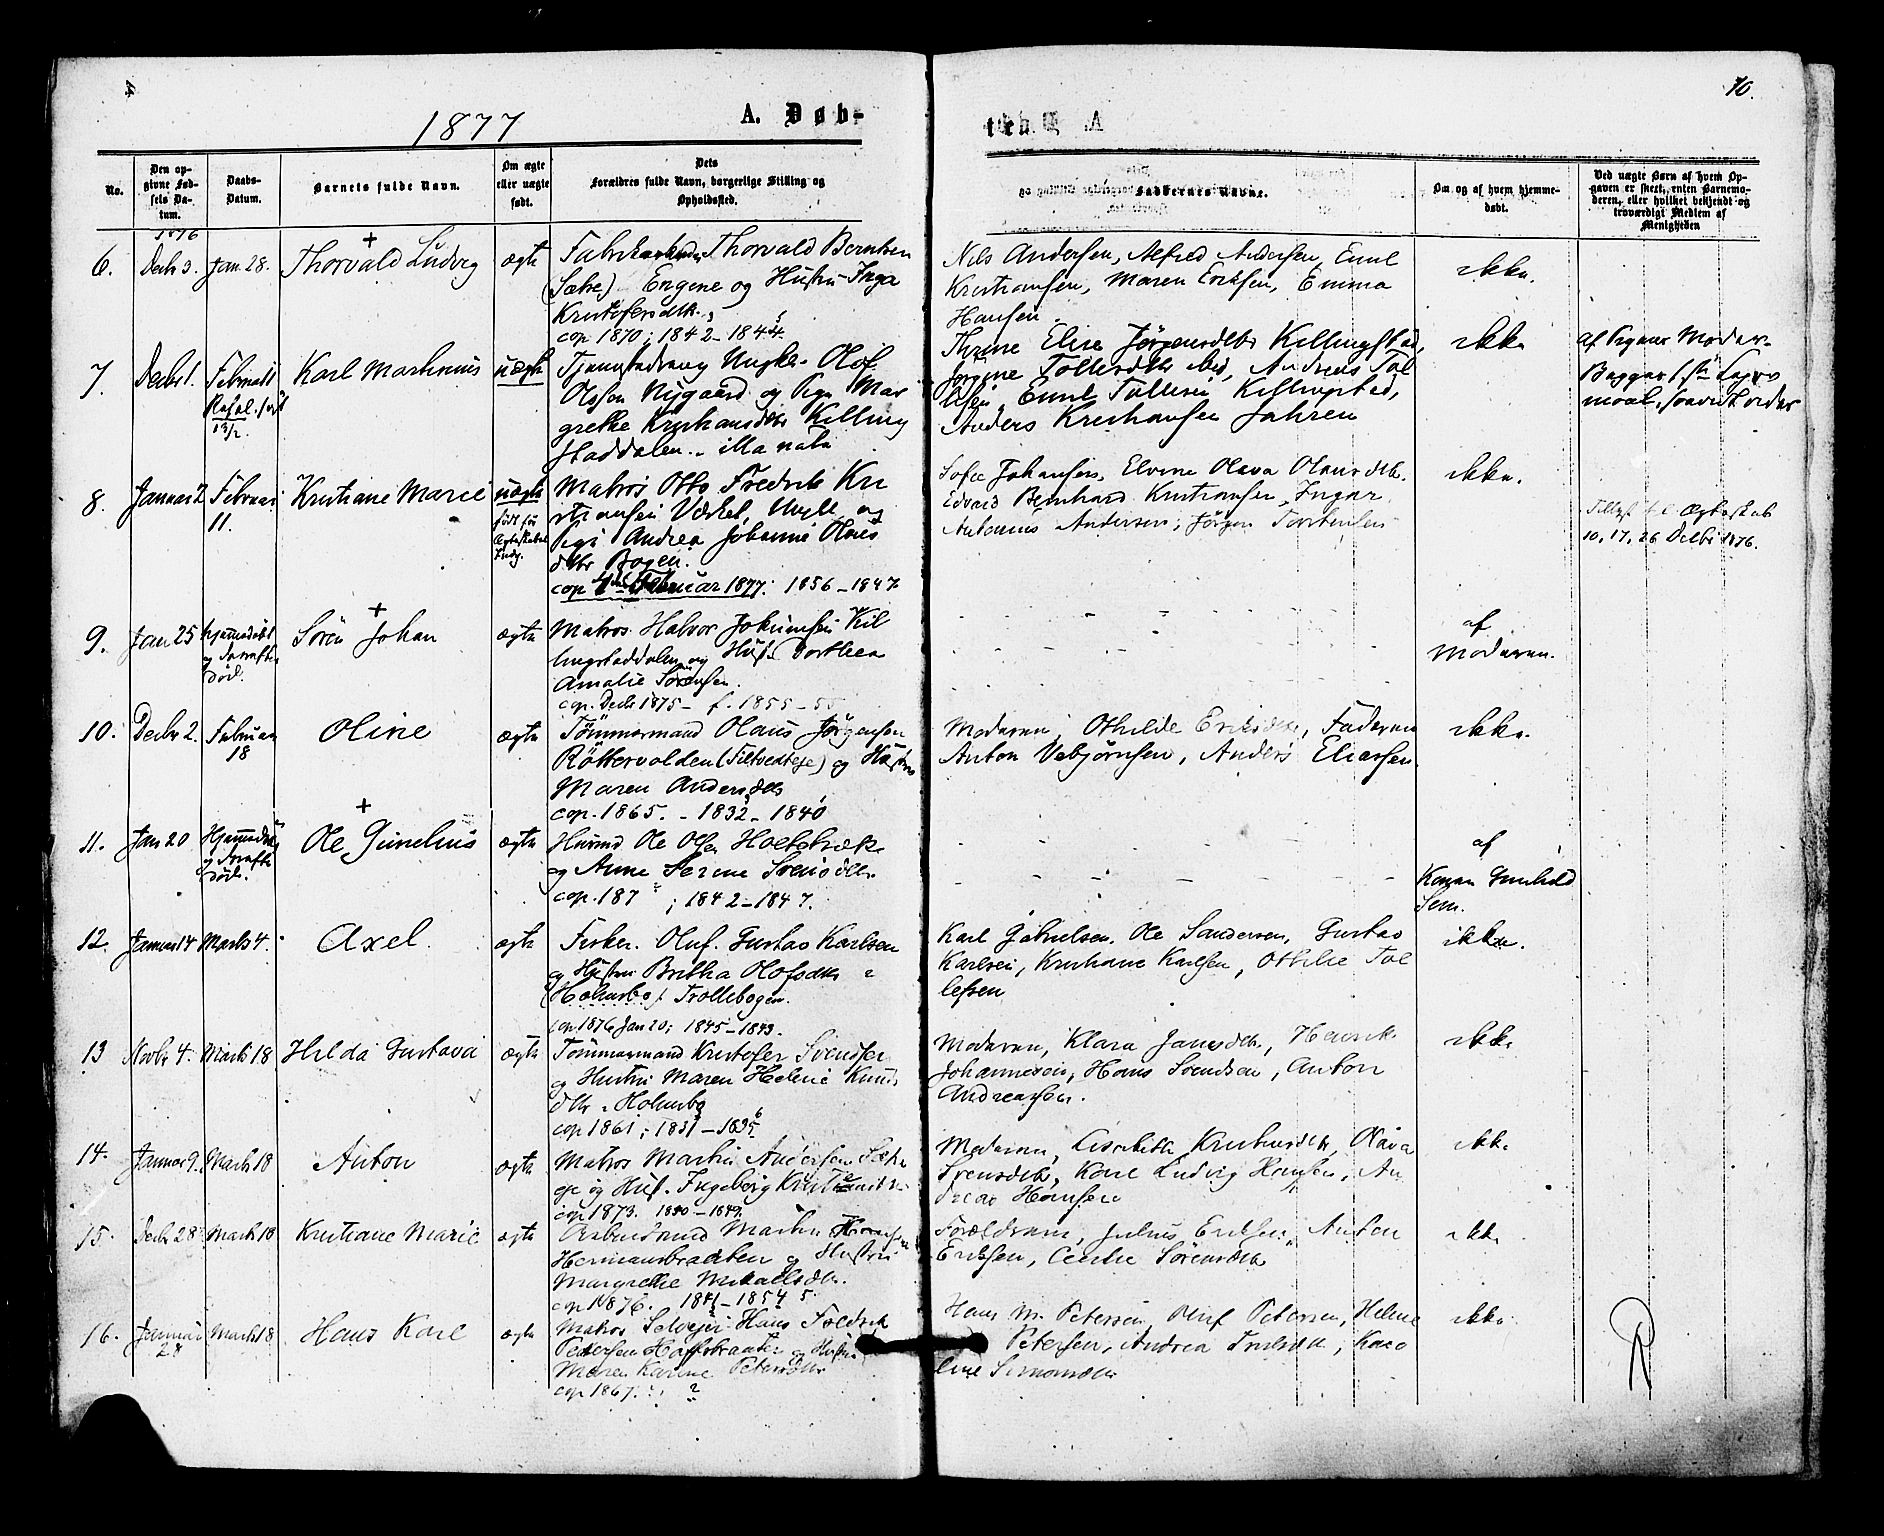 1877
A. Døb-
te A
10.
No.
Den opgivne Fødsels Datum.
Daabs-Datum.
Barnets fulde Navn.
Om ægte eller uægte født.
Dets Forældres fulde Navn, borgerlige Stilling og Opholdssted.
Faddernes Navne.
Om og af hvem hjemmedøbt.
Ved uægte Børn af hvem Opgaven er skeet, enten Barnemoderen, eller hvilket bekjendt og troværdigt Medlem af Menigheden
1876
6. Decbr 3. Jan. 28. Thorvald Ludvig ægte
Thorvald Berntsen
(Sætre) Engene og Hustru Inga
Kristofersdtr.
cop. 1870; 1842 - 1844
Nils Andersen, Alfred Andersen, Emil
Kristiansen, Maren Eriksen, Emma
Hansen.
ikke.
7. Decbr 1. Februar 11 Karl Martinius uægte
13/2
Ungkr. Olof
Olsson Nygaard og Pige Mar
grethe Kristiansdtr Killing
staddalen. - illa nata
Elise Jørgensdtr Killingstad,
Jørgine Tollefsdtr ibid, Andreas Tol
lefsen, Emil Tollefsen Killingstad,
Anders Kristiansen Jahren
ikke
af Pigens Moder
8. Januar 2 Februar 11. Kristiane Marie uægte
født før
Matros Otto Fredrik Kri
stiansen Værket, Ungk. og
Pige Andrea Johanne Olaus
dtr Bogen.
cop Februar 1877. 1856 - 1847
Sofie Johansen, Elvine Olava Olausdtr.
Edvard Bernhard Kristiansen, Ingar
Antonius Andersen, Jørgen Torstensen
ikke.
Tillyst til Ægteskab
10, 17, 26 Decbr 1876.
9. Jan 25 Hjemmedøbt
og
død.
Søren Johan ægte
Matros Halvor Jokumsen Kil
lingstaddalen og Hust. Dorthea
Amalie Sørensen.
cop. Decbr 1875 - f. 1855 - 55
af
Moderen.
10. Decbr 2. Februar 18 Oline ægte
Tømmermand Olaus Jørgensen
Røttervolden (Tiltvedteje) og Hustru
Maren Andersdtr
cop. 1865. - 1832 - 1840
Moderen, Othilde Eriksdtr, Faderen
Anton Vebjørnsen, Anders Eliassen
ikke.
11. Jan 20 Hjemmedøbt
og
død.
Ole Gunelius ægte
Ole Olsen
og Anne Serine Svensdtr.
cop. 187 ? ; 1842 - 1847.
af
Konen Gunhild
Sem.
12. Januar 14 Marts 4. Axel. ægte
Fisker Oluf Gustav Karlsen
og Hustru Britha Olofsdtr
(Holmsbo) Trollebogen.
cop 1876 Jan 20; 1845 - 1843.
Karl Gabrielsen, Ole Sandersen, Gustav
Karlsen, Kristiane Karlsen, Othilie Tol
lefsen
ikke.
13 Novbr 4. Marts 18 Hilda Gustava ægte
Tømmermand Kristofer Svendsen
og Hustru Maren Helene Knuds
dtr. Holmsbo
cop 1861; 1831 - 1835
Moderen, Klara Jansdtr, Henrik
Johannesen, Hans Svendsen, Anton
Andreassen.
ikke
14. Januar 9. Marts 18 Anton ægte
Matros Martin Andersen Sætre
eje og Hust. Ingeborg
cop 1873. 1840 - 1849.
Moderen, Lisabeth Olava
Svensdtr, Karl Ludvig Hansen, An
dreas Hansen
ikke
15. Decbr 28 Marts 18 Kristiane Marie ægte
Arbeidsmand Martin Hansen
Hermansbraaten og Hustru
Margrethe Mikaelsdtr.
cop 1876. 1841 - 1854
Forældrene, Julius Eriksen, Anton
Eriksen, Cecilie Sørensdtr
ikke
16. Januar 28 Marts 18 Hans Karl ægte
Matros Selvejer Hans Fredrik
Pedersen og Hustru
Maren Karine Petersdtr
cop 1867. ?
Hans M. Petersen, Oluf Petersen, Helene
Petersen, Andrea Karo
line Simonsdtr
ikke.